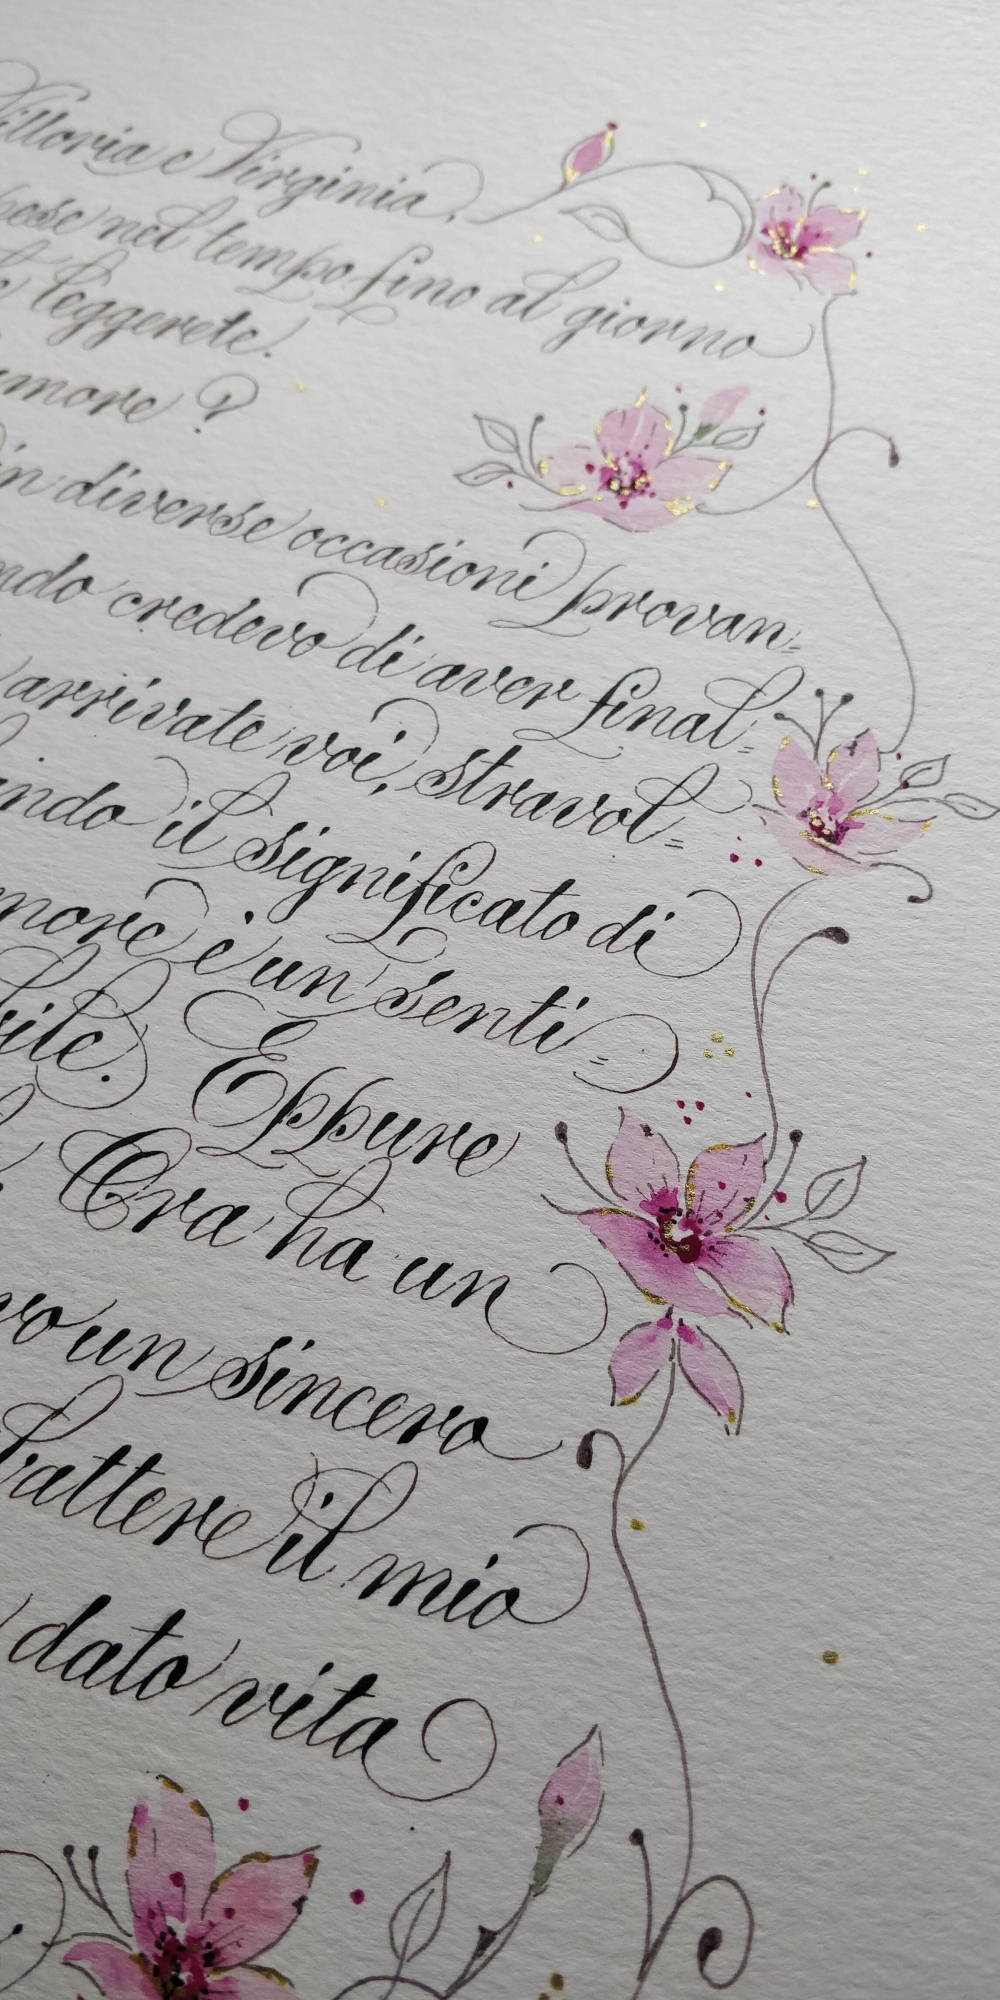 Vittoria e Virginia,
nel tempo fino al giorno
leggerete.
more ?
in diverse occasioni provan=
ndo credevo di aver final=
arrivate voi, stravol=
ndo il significato di
more è un senti=
bile. Eppure
Ora ha un
vo un sincero
battere il mio
dato vita